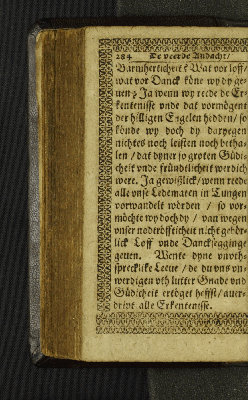 284 De veerde Andacht/
Barmherticheit? Wat vor loff/
wat vor Danck köne wy dy ge-
uen? Ja wenn wy rede de Er-
kentenisse vnde dat vormögent
der hilligen Engelen hedden/ so
könde wy doch dy dargegen
nichtes noch leisten noch betha-
len/ dat dyner so groten Güdi-
cheit vnde fründtlicheit werdich
were. Ja gewißlick/ wenn rede
alle vnse Ledematen in Tungen
vorwandelt wörden / so vor-
möchte wy doch dy / van wegen
vnser nodtröfticheit nicht gehör-
lick Loff vnde Dancksegginge
geuen. Wente dyne vnuth-
spreckliche Leeue / de du vns vn-
werdigen vth lutter Gnade vnd
Güdicheit ertöget heffst/ auer-
dript alle Erkentenisse.